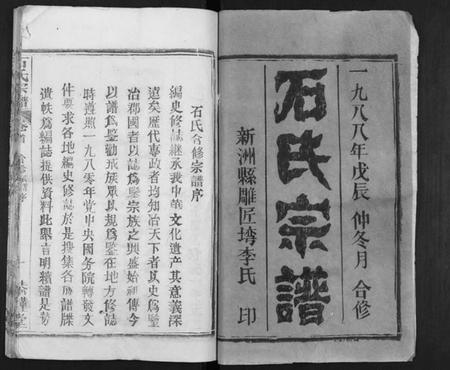 一九八八年戊辰 仲冬月 合修
石氏宗譜
新洲縣雕匠塆李氏 印
石氏合修宗譜序
編史修誌継承我中華文化遺产其意義深
遠矣歷代專政者均知冶天下者以史爲鑒
冶郡國者以誌爲鑒宗族之興盛始祖傳今
以譜爲鑒勸戒族眾以規爲鑒在地方修誌
時遵照一九八0年党中央國务院轉發文
件要求各地編史修誌於是搜集各姓譜牒
遺軼爲編誌提供資料此舉吉明續譜是势
石氏宗譜